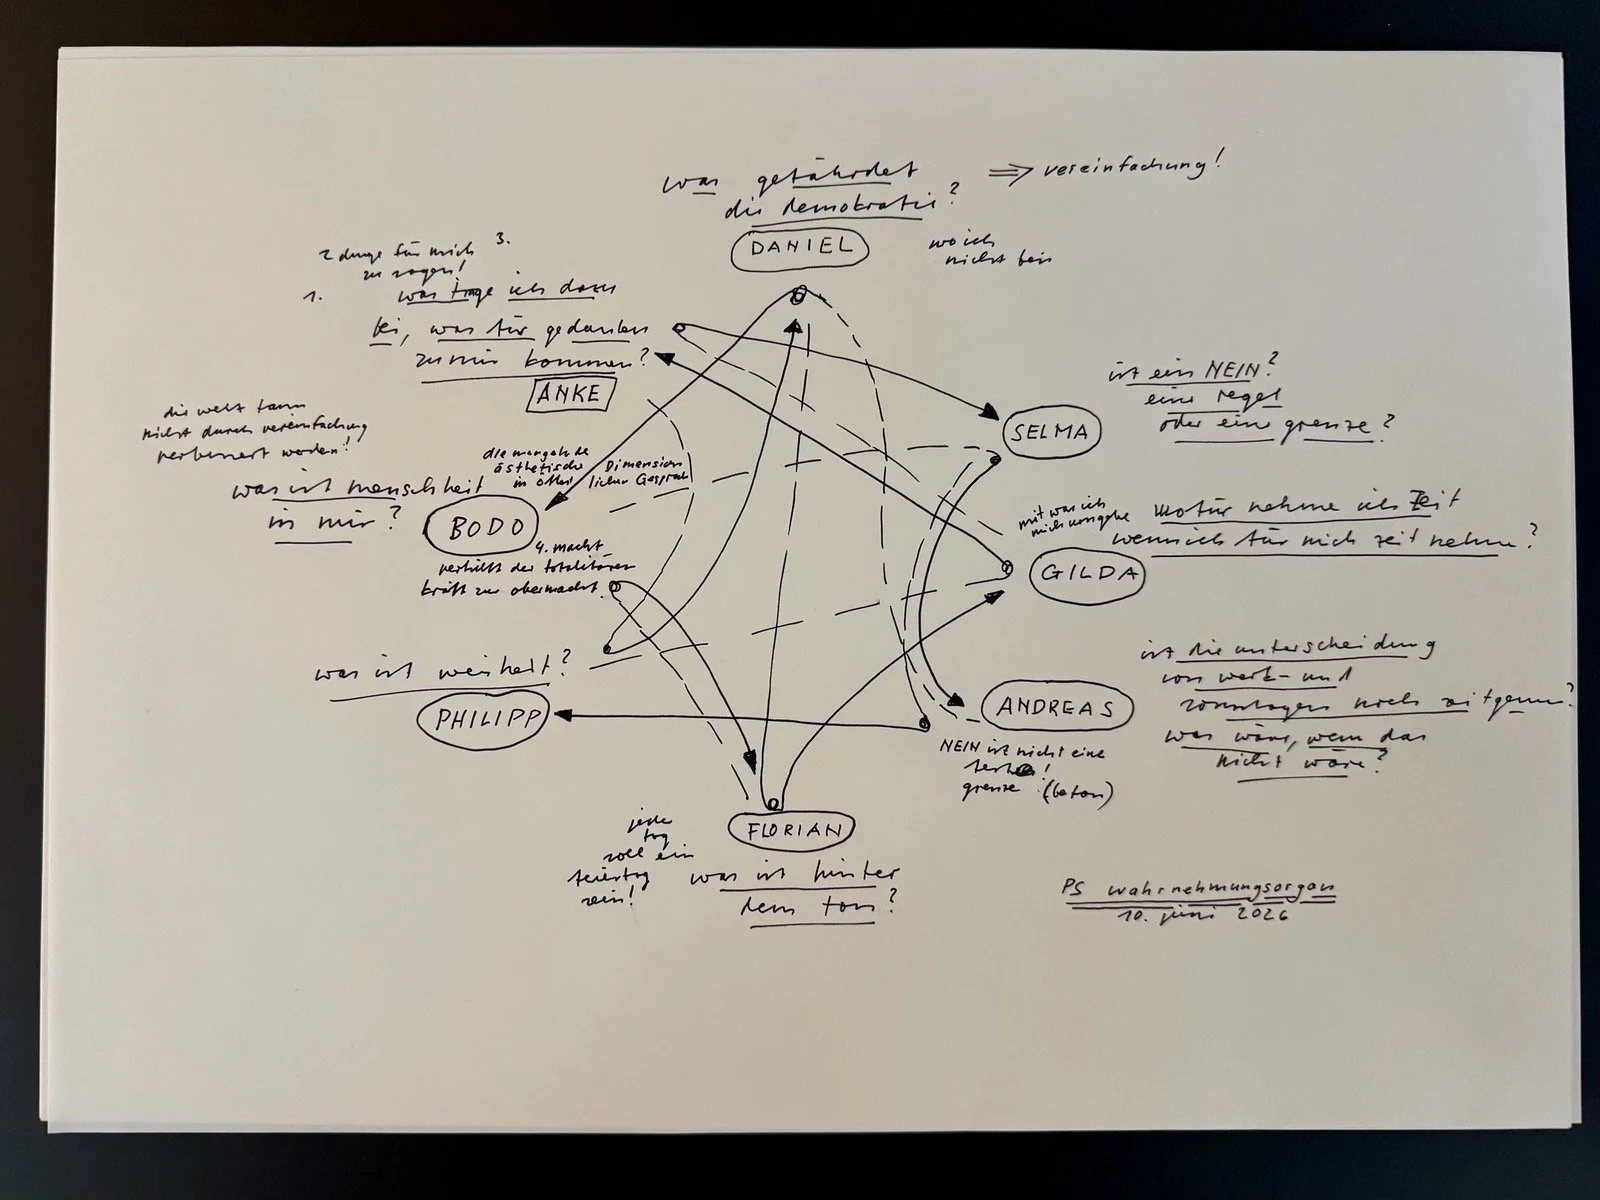 was gefährdet
die demokratie?
⇒ vereinfachung!
DANIEL
wo ich
nicht bin
2 dinge für mich 3.
zu sagen!
1.
was trage ich dazu
bei, was für gedanken
zu mir kommen?
ANKE
ist ein NEIN?
eine regel
oder eine grenze?
SELMA
die welt kann
nicht durch vereinfachung
verbessert werden!
was ist menschheit
in mir?
BODO
die mangelnde
ästhetische Dimension
in öffentlichen Gespräch
4. macht
verhilft der totalitären
kraft zur obermacht.
mit was ich
mich umgebe
wofür nehme ich Zeit
wenn ich für mich zeit nehme?
GILDA
was ist weisheit?
PHILIPP
ist die unterscheidung
von werk- und
sonntagen noch zeitgemäss?
was wäre, wenn das
nicht wäre?
ANDREAS
NEIN ist nicht eine
feste!
grenze (beton)
FLORIAN
jeder
tag
soll ein
feiertag
sein!
was ist hinter
dem ton?
PS wahrnehmungsorgan
10. juni 2026